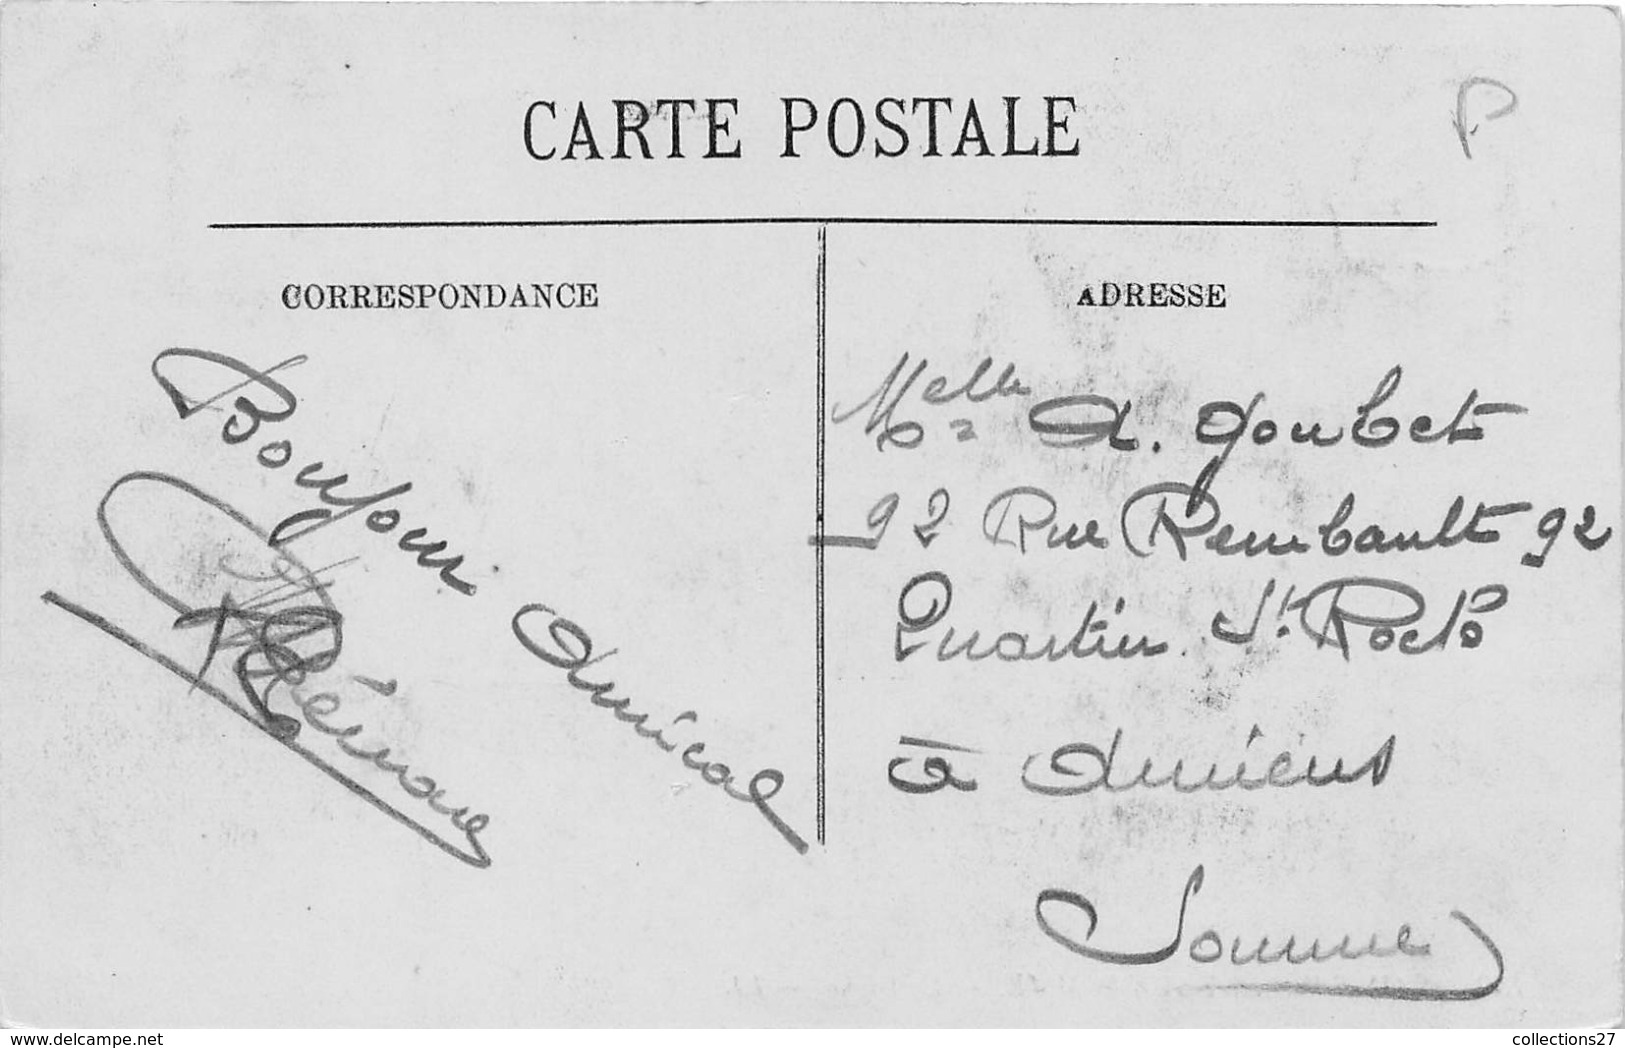 CARTE POSTALE
P
CORRESPONDANCE
Bonjour Amical
ADRESSE
Melle A. Goubet
92 Rue Rembault 92
Quartier St Roch
à Amiens
Somme
delcampe.net
collections27